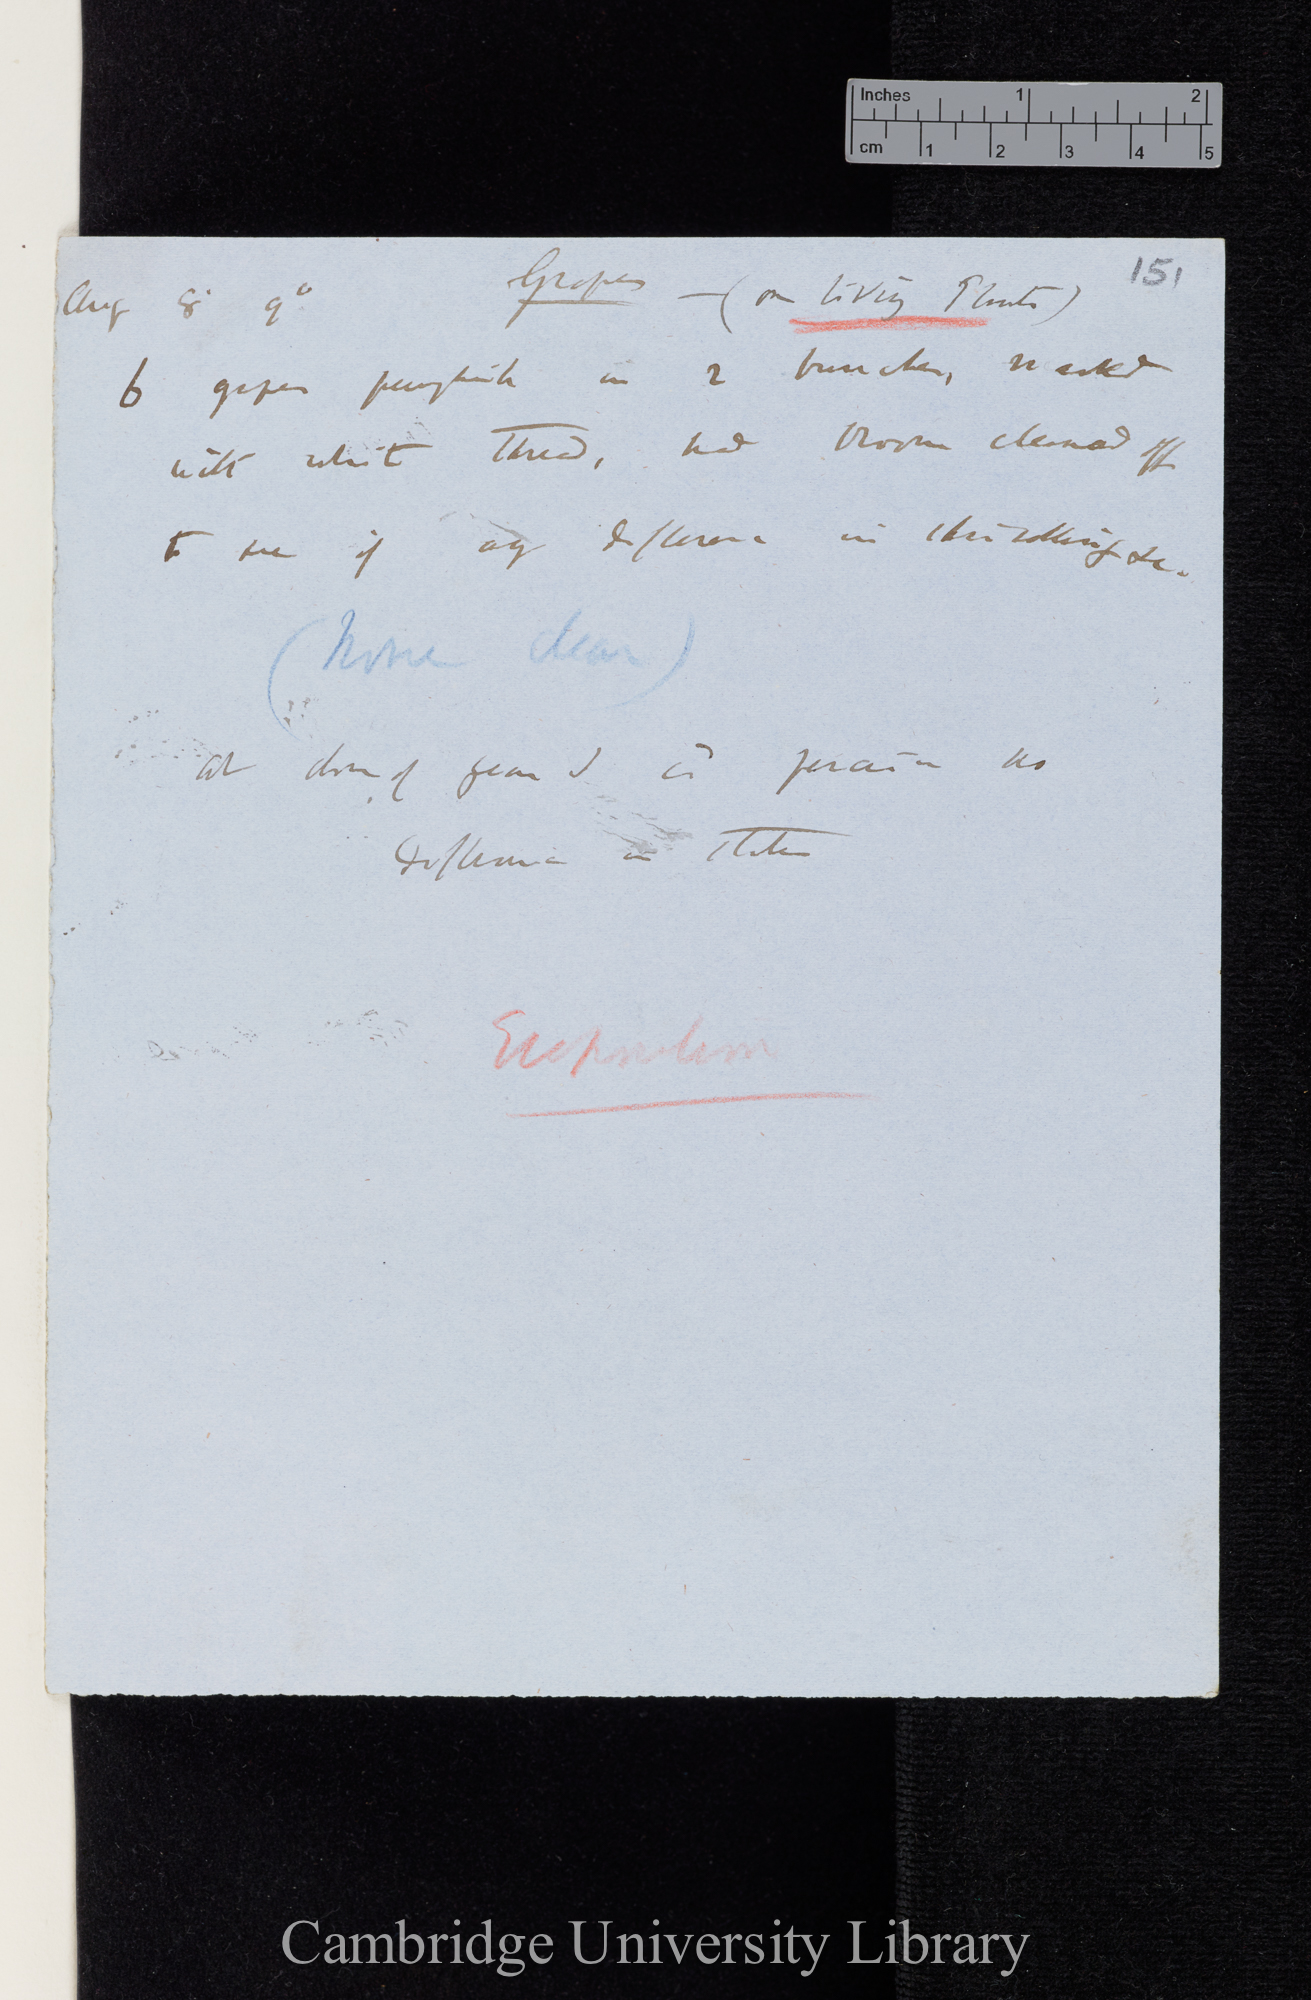 Inches 1 2
cm 1 2 3 4 5
151
Aug 8° 9° Grapes — (on living Plants)
6 grapes in 2 bunches, marked
with white thread, had bloom cleaned off
to see if any difference in shrivelling &c.
(None clear)
at close of year I could perceive no
difference in states
Cambridge University Library